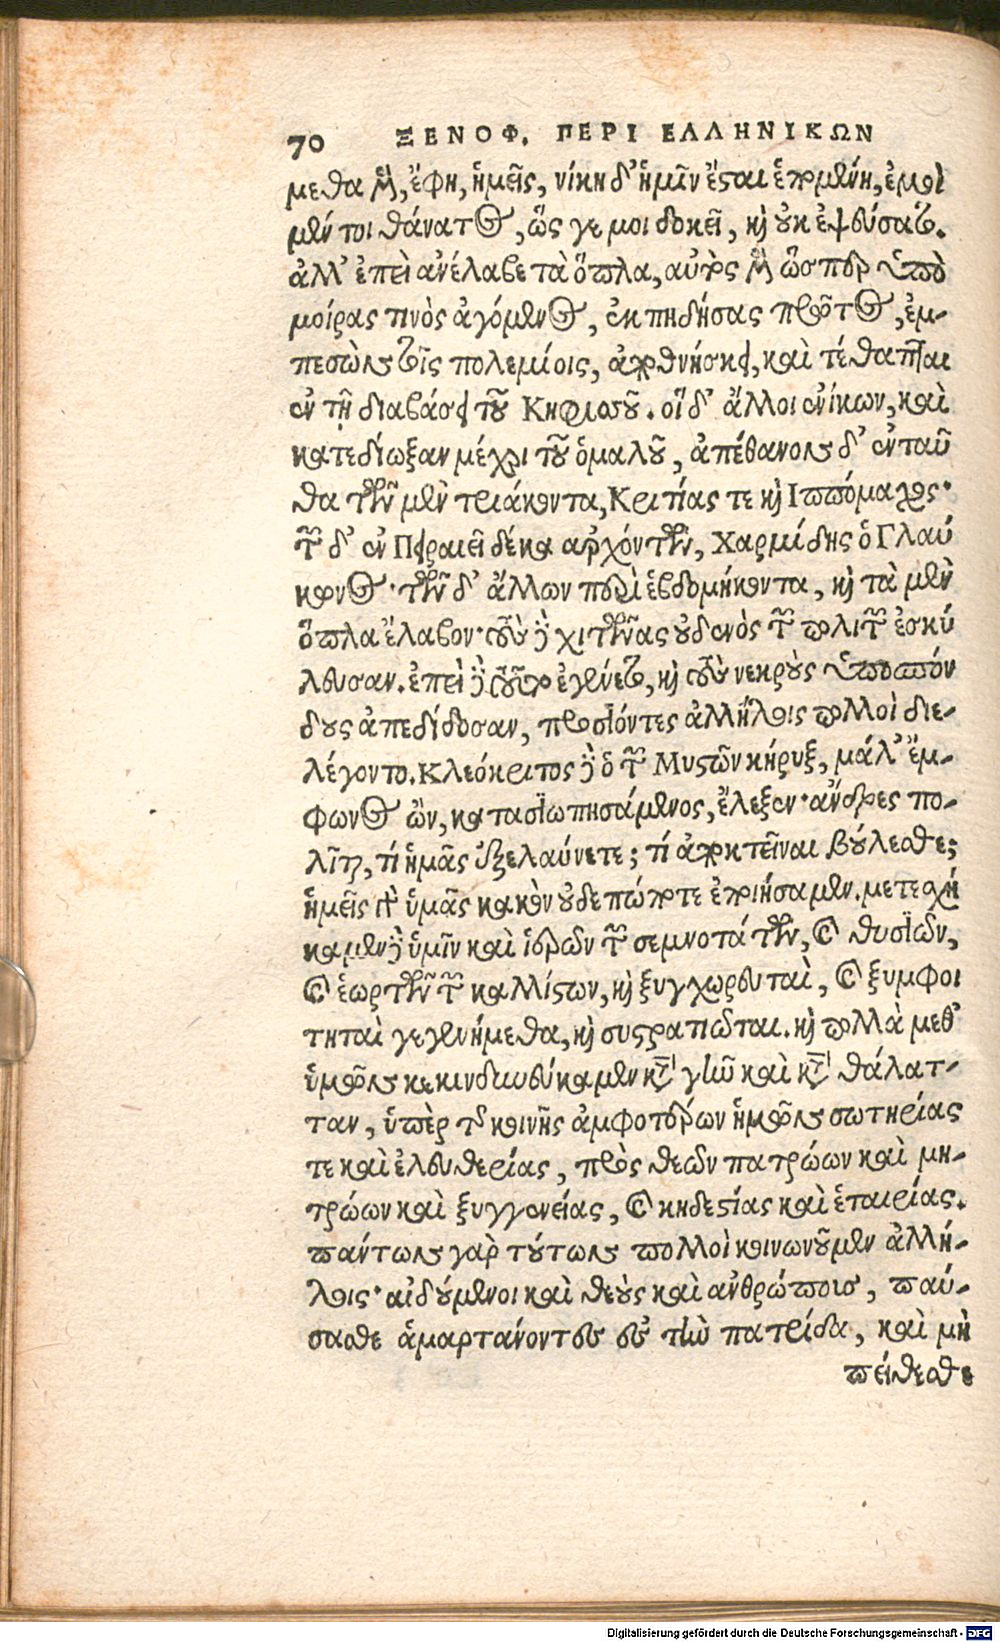 70 ΞΕΝΟΦ. ΠΕΡΙ ΕΛΛΗΝΙΚΩΝ
μεθα μὲν, ἔφη, ἡμεῖς, νίκη δ' ἡμῖν ἔσται ἑπομένη, ἐμοὶ
μέν τοι θάνατος, ὥς γε μοι δοκεῖ, καὶ οὐκ ἐψεύσατο.
ἀλλ' ἐπεὶ ἀνέλαβε τὰ ὅπλα, αὐτὸς μὲν ὥσπερ ὑπὸ
μοίρας τινὸς ἀγόμενος, ἐκπηδήσας πρῶτος, ἐμ-
πεσὼν τοῖς πολεμίοις, ἀποθνήσκει, καὶ τέθαπται
ἐν τῇ διαβάσει τοῦ Κηφισοῦ. οἱ δ' ἄλλοι ἐνίκων, καὶ
κατεδίωξαν μέχρι τοῦ ὁμαλοῦ, ἀπέθανον δ' ἐνταῦ
θα τῶν μὲν τριάκοντα, Κριτίας τε καὶ Ιππόμαχος·
τῶν δ' ἐν Πειραιεῖ δέκα ἀρχόντων, Χαρμίδης ὁ Γλαύ
κωνος· τῶν δ' ἄλλων περὶ ἑβδομήκοντα, καὶ τὰ μὲν
ὅπλα ἔλαβον· τοὺς δὲ χιτῶνας οὐδενὸς τῶν πολιτῶν ἐσκύ
λευσαν. ἐπεὶ δὲ τοῦτο ἐγένετο, καὶ τοὺς νεκροὺς ὑποσπόν
δους ἀπεδίδοσαν, προσιόντες ἀλλήλοις πολλοὶ διε-
λέγοντο. Κλεόκριτος δὲ ὁ τῶν Μυστῶν κήρυξ, μάλ' ἔμ-
φωνος ὢν, κατασιωπησάμενος, ἔλεξεν· ἄνδρες πο-
λῖται, τί ἡμᾶς ἐξελαύνετε; τί ἀποκτεῖναι βούλεσθε;
ἡμεῖς γὰρ ὑμᾶς κακὸν οὐδεπώποτε ἐποιήσαμεν. μετεσχή
καμεν δὲ ὑμῖν καὶ ἱερῶν τῶν σεμνοτάτων, καὶ θυσιῶν,
καὶ ἑορτῶν τῶν καλλίστων, καὶ ξυγχωρευταὶ, καὶ ξυμφοι
τηταὶ γεγενήμεθα, καὶ συστρατιῶται. καὶ πολλὰ μεθ'
ὑμῶν κεκινδυνεύκαμεν κατὰ γῆν καὶ κατὰ θάλατ-
ταν, ὑπὲρ τῆς κοινῆς ἀμφοτέρων ἡμῶν σωτηρίας
τε καὶ ἐλευθερίας, πρὸς θεῶν πατρώων καὶ μη-
τρώων καὶ ξυγγενείας, καὶ κηδεστίας καὶ ἑταιρίας.
πάντων γὰρ τούτων πολλοὶ κοινωνοῦμεν ἀλλή-
λοις· αἰδούμενοι καὶ θεοὺς καὶ ἀνθρώποις, παύ-
σασθε ἁμαρτάνοντες ἐς τὴν πατρίδα, καὶ μὴ
πείθεσθε
Digitalisierung gefördert durch die Deutsche Forschungsgemeinschaft - DFG